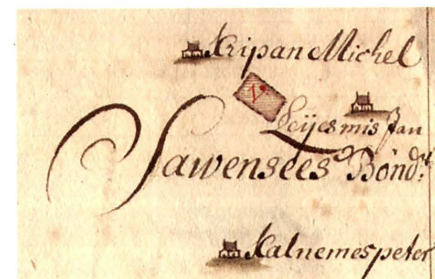 Kripan Michel
V.
Seijesmis Jan
Sawensees Bönd.
Kalnemes peter